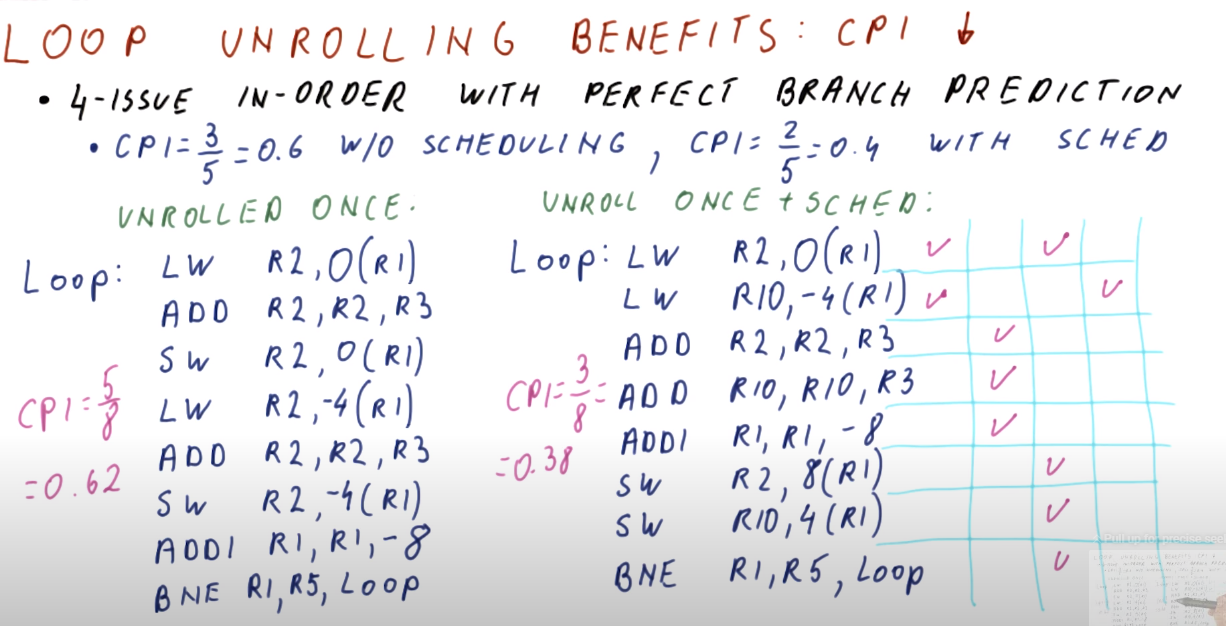 LOOP UNROLLING BENEFITS: CPI ↓
• 4-ISSUE IN-ORDER WITH PERFECT BRANCH PREDICTION
• CPI=3/5=0.6 W/O SCHEDULING, CPI=2/5=0.4 WITH SCHED
UNROLLED ONCE:
Loop: LW R2,0(R1)
ADD R2,R2,R3
SW R2,0(R1)
LW R2,-4(R1)
ADD R2,R2,R3
SW R2,-4(R1)
ADDI R1,R1,-8
BNE R1,R5,LOOP
CPI=5/8
=0.62
UNROLL ONCE + SCHED:
Loop: LW R2,0(R1) ✓ ✓
LW R10,-4(R1) ✓ ✓
ADD R2,R2,R3 ✓
ADD R10,R10,R3 ✓
ADDI R1,R1,-8 ✓
SW R2,8(R1) ✓
SW R10,4(R1) ✓
BNE R1,R5,Loop ✓
CPI=3/8=
=0.38